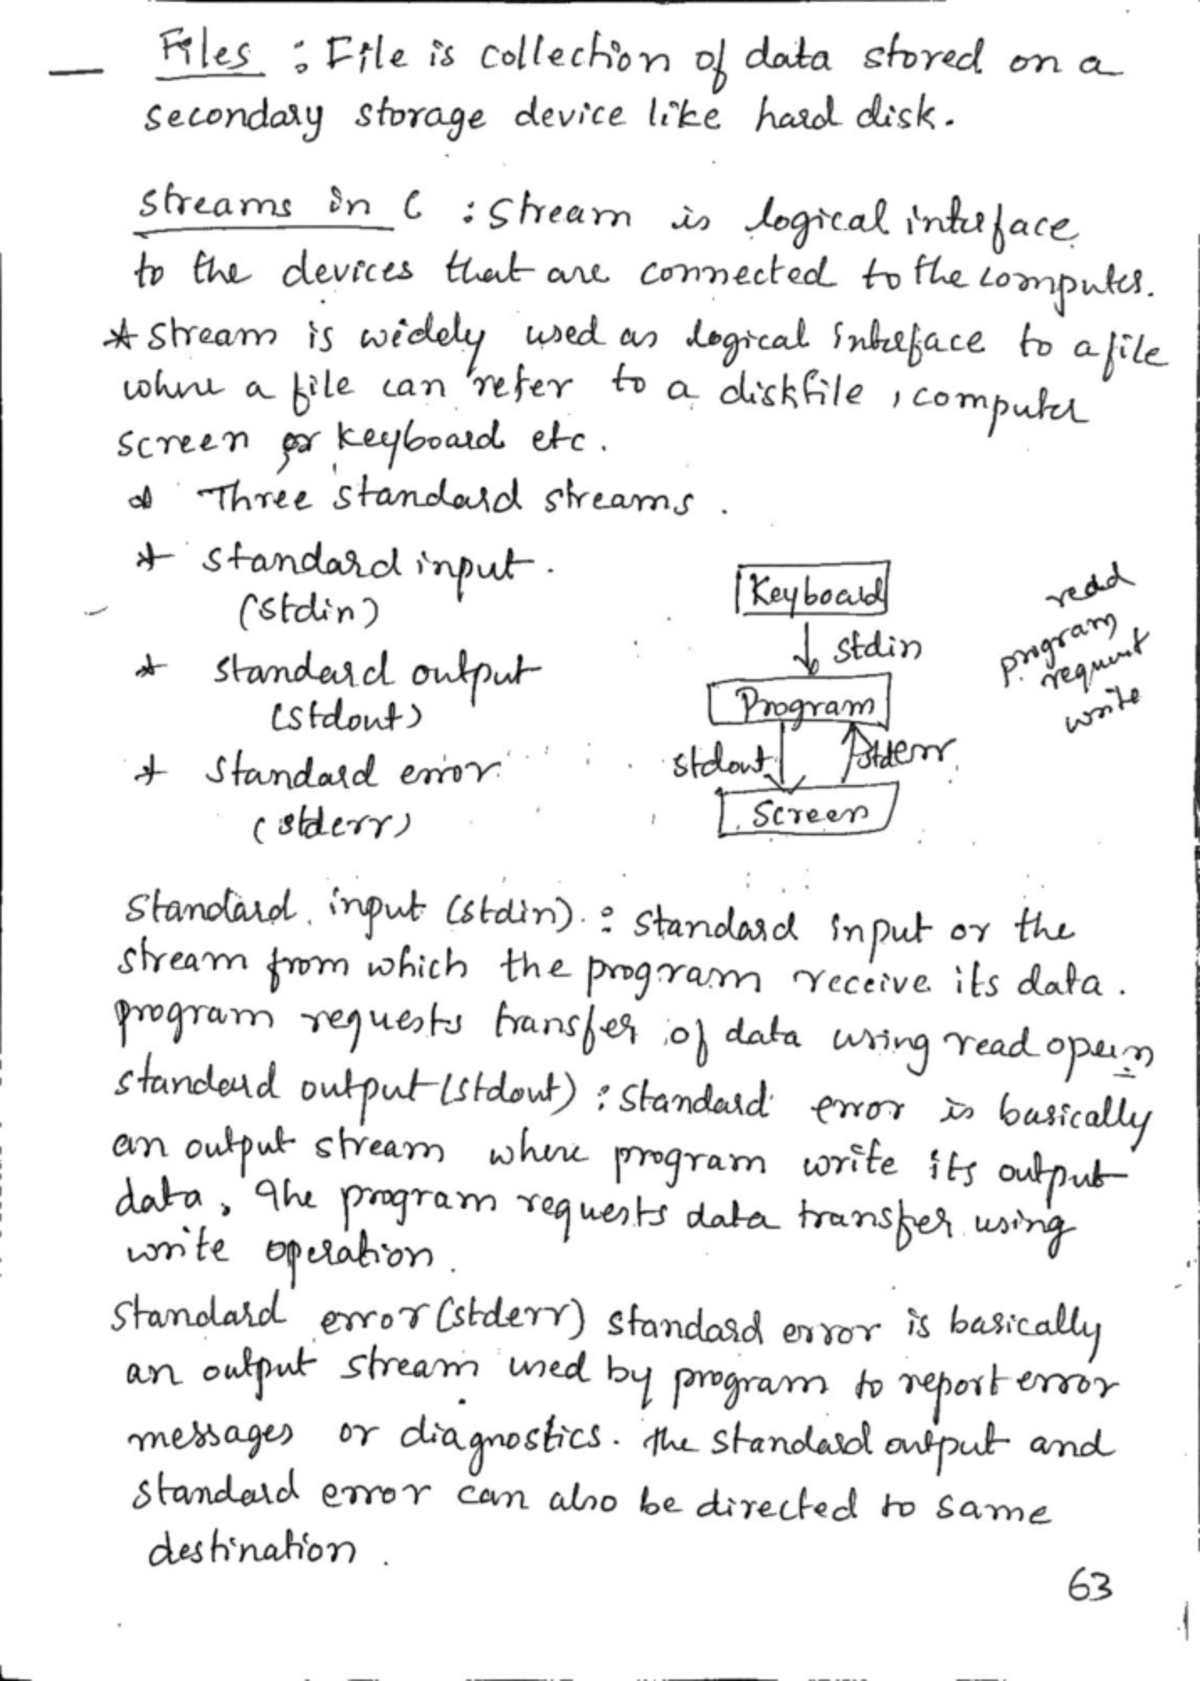 Files : File is collection of data stored on a
secondary storage device like hard disk.
Streams in C : Stream is logical interface
to the devices that are connected to the computer.
* Stream is widely used as logical interface to a file
where a file can refer to a diskfile, computer
screen or keyboard etc.
Three standard streams.
* standard input.
(stdin)
* standard output
(stdout)
* standard error
(stderr)
Keyboard
stdin
Program
stdout stderr
Screen
read
program
request
write
Standard input (stdin) : Standard input or the
stream from which the program receive its data.
program requests transfer of data using read opern
standard output (stdout) : Standard error is basically
an output stream where program write its output
data, The program requests data transfer using
write operation.
Standard error (stderr) standard error is basically
an output stream used by program to report error
messages or diagnostics. The standard output and
standard error can also be directed to same
destination.
63